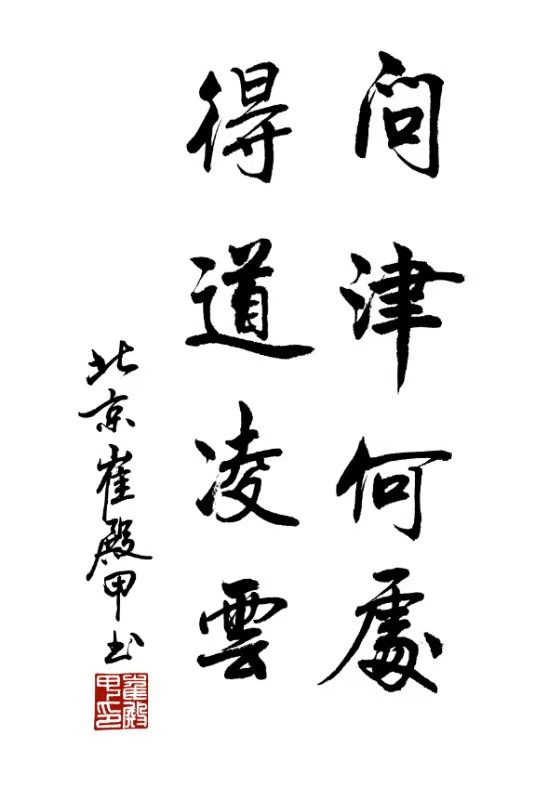 问津何處
得道凌雲
北京崔殿甲书
崔殿
甲印